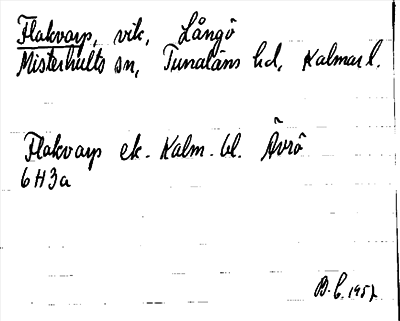 Flakvarp, vik, Långö
Misterhults sn, Tunaläns hd, Kalmar l.
Flakvarp ek. Kalm. bl. Ävrö
6H3a
B.E. 1957